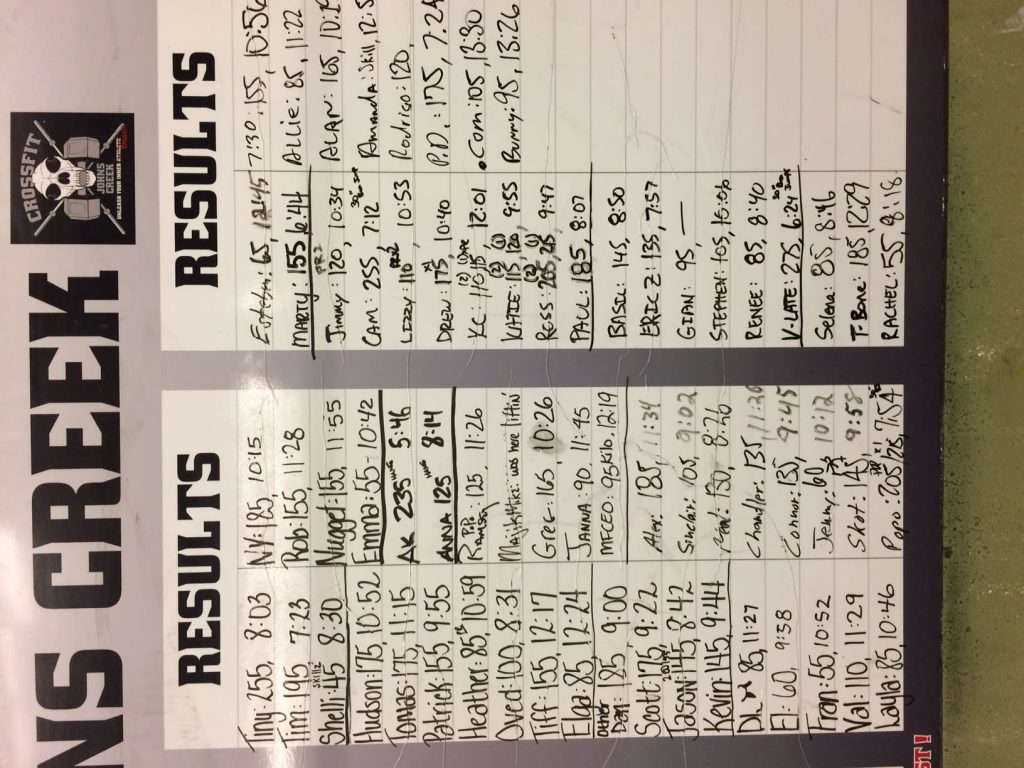 NS CREEK
CROSSFIT
JOHNS
CREEK
UNLEASH YOUR INNER ATHLETE
RESULTS
Tiny: 255, 8:03
Tim: 195 7:23
Shelli: 45 8:30
Hudson: 175, 10:52
Tomas: 175, 11:15
Patrick: 155, 9:55
Heather: 85 10:59
Oved: 100, 8:31
Tiff: 155, 12:17
Elga: 85, 12:24
Other
Dan: 185, 9:00
Scott: 175, 9:22
JASON: 145, 8:42
Kevin: 145, 9:44
85, 11:27
El: 60, 9:58
Fran: 55, 10:52
Val: 110, 11:29
Layla: 85, 10:46
NY: 125, 10:15
Rob: 155, 11:28
Nugget: 155, 11:55
Emma: 55 - 10:42
AK 235 5:46
ANNA 125 8:14
125, 11:26
was here liftin'
Greg: 165, 10:26
JANNA: 90, 11:45
MFCEO: 95Kilo, 12:19
Alex: 185, 11:34
Sinclair: 105, 9:02
130, 8:26
Chandler: 135
Connor: 135, 9:45
Jeremy: 10:12
Skot: 145, 9:58
Popo: 205, 7:54
RESULTS
65, 12:45
MARTY: 155
Jimmy: 120, 10:34
CAM: 255, 7:12
Lizzy: 110, 10:53
DREW: 175, 10:40
12:01
KATIE: 115, 9:55
Ross: 9:47
PAUL: 185, 8:07
BASIL: 145, 8:50
ERIC Z: 135, 7:57
GIAN: 95 —
STEPHEN: 105,
RENEE: 85, 8:40
K-LATE: 275, 6:24
Selena: 85, 8:46
T-Bone: 185, 12:29
RACHEL: 55, 8:18
7:30: 155, 10:56
ALLIE: 85, 11:22
ALAN: 165,
Amanda: Skill,
Rodrigo: 120,
P.D.: 175, 7:24
Corn: 105, 13:30
Bunny: 95, 13:26
ST!